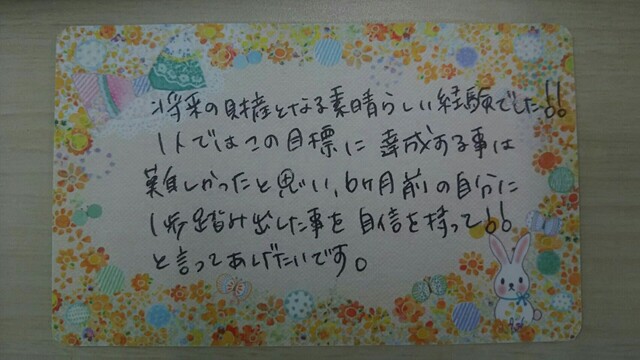 将来の財産となる素晴らしい経験でした!!
1人ではこの目標に達成する事は
難しかったと思い、6ヶ月前の自分に
1歩踏み出した事を自信を持って!!
と言ってあげたいです。